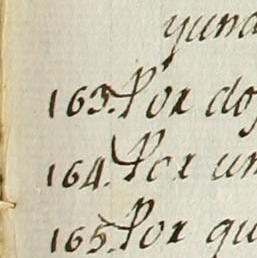 yund
163. Por dos
164. Por un
165. Por qu